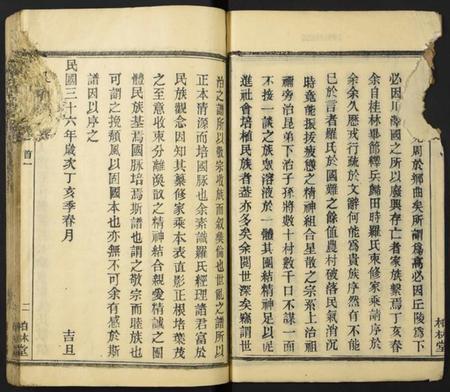 見聞於鄉曲矣所謂為高必因丘陵為下
必因川澤國之所以廢興存亡者家族繫焉丁亥春
余自桂林畢節釋兵歸田時羅氏東修家乘請序於
余余久歷戎行疏於文辭何能為貴族序然有不能
已於言者羅氏於國難之餘值農村破落民氣消沉
時竟能振拔疲憊之精神組合星散之宗系上治祖
禰旁治昆弟下治子孫將數十村數千口不謀一面
不接一談之族眾溶液於一體其團結精神足以促
進社會培植民族者葢亦多矣余閱世深矣竊謂世
柏林堂
治之譜所以敬宗收族而敘彞倫也世亂之譜所以
正本清源而培國脉也余素識羅氏經理諸君富於
民族觀念因知其纂修家乘本表直影正根培葉茂
之至意收束分離渙散之精神結合親愛精誠之團
體民族基焉國脉培焉斯譜也謂之敬宗而睦族也
可謂之挽頹風以固國本也亦無不可余有感於斯
譜因以序之
民國三十六年歲次丁亥季春月
吉旦
首一
二
柏林堂